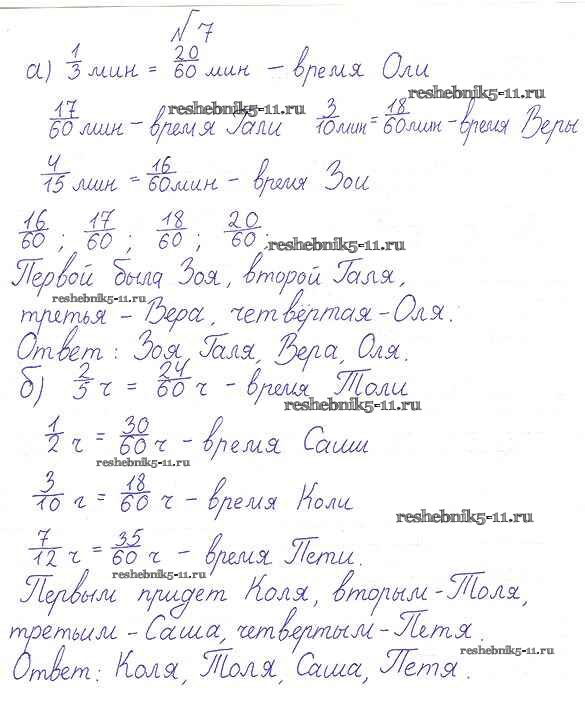 №7
а) 1/3 мин = 20/60 мин – время Оли
reshebnik5-11.ru
17/60 мин – время Гали 3/10 мин = 18/60 мин – время Веры
reshebnik5-11.ru
4/15 мин = 16/60 мин – время Зои
16/60 ; 17/60 ; 18/60 ; 20/60 ;
reshebnik5-11.ru
Первой была Зоя, второй Галя,
reshebnik5-11.ru
третья – Вера, четвёртая – Оля.
Ответ: Зоя, Галя, Вера, Оля.
б) 2/5 ч = 24/60 ч – время Толи
reshebnik5-11.ru
1/2 ч = 30/60 ч – время Саши
reshebnik5-11.ru
3/10 ч = 18/60 ч – время Коли
reshebnik5-11.ru
7/12 ч = 35/60 ч – время Пети.
reshebnik5-11.ru
Первым придет Коля, вторым – Толя,
третьим – Саша, четвертым – Петя.
reshebnik5-11.ru
Ответ: Коля, Толя, Саша, Петя.